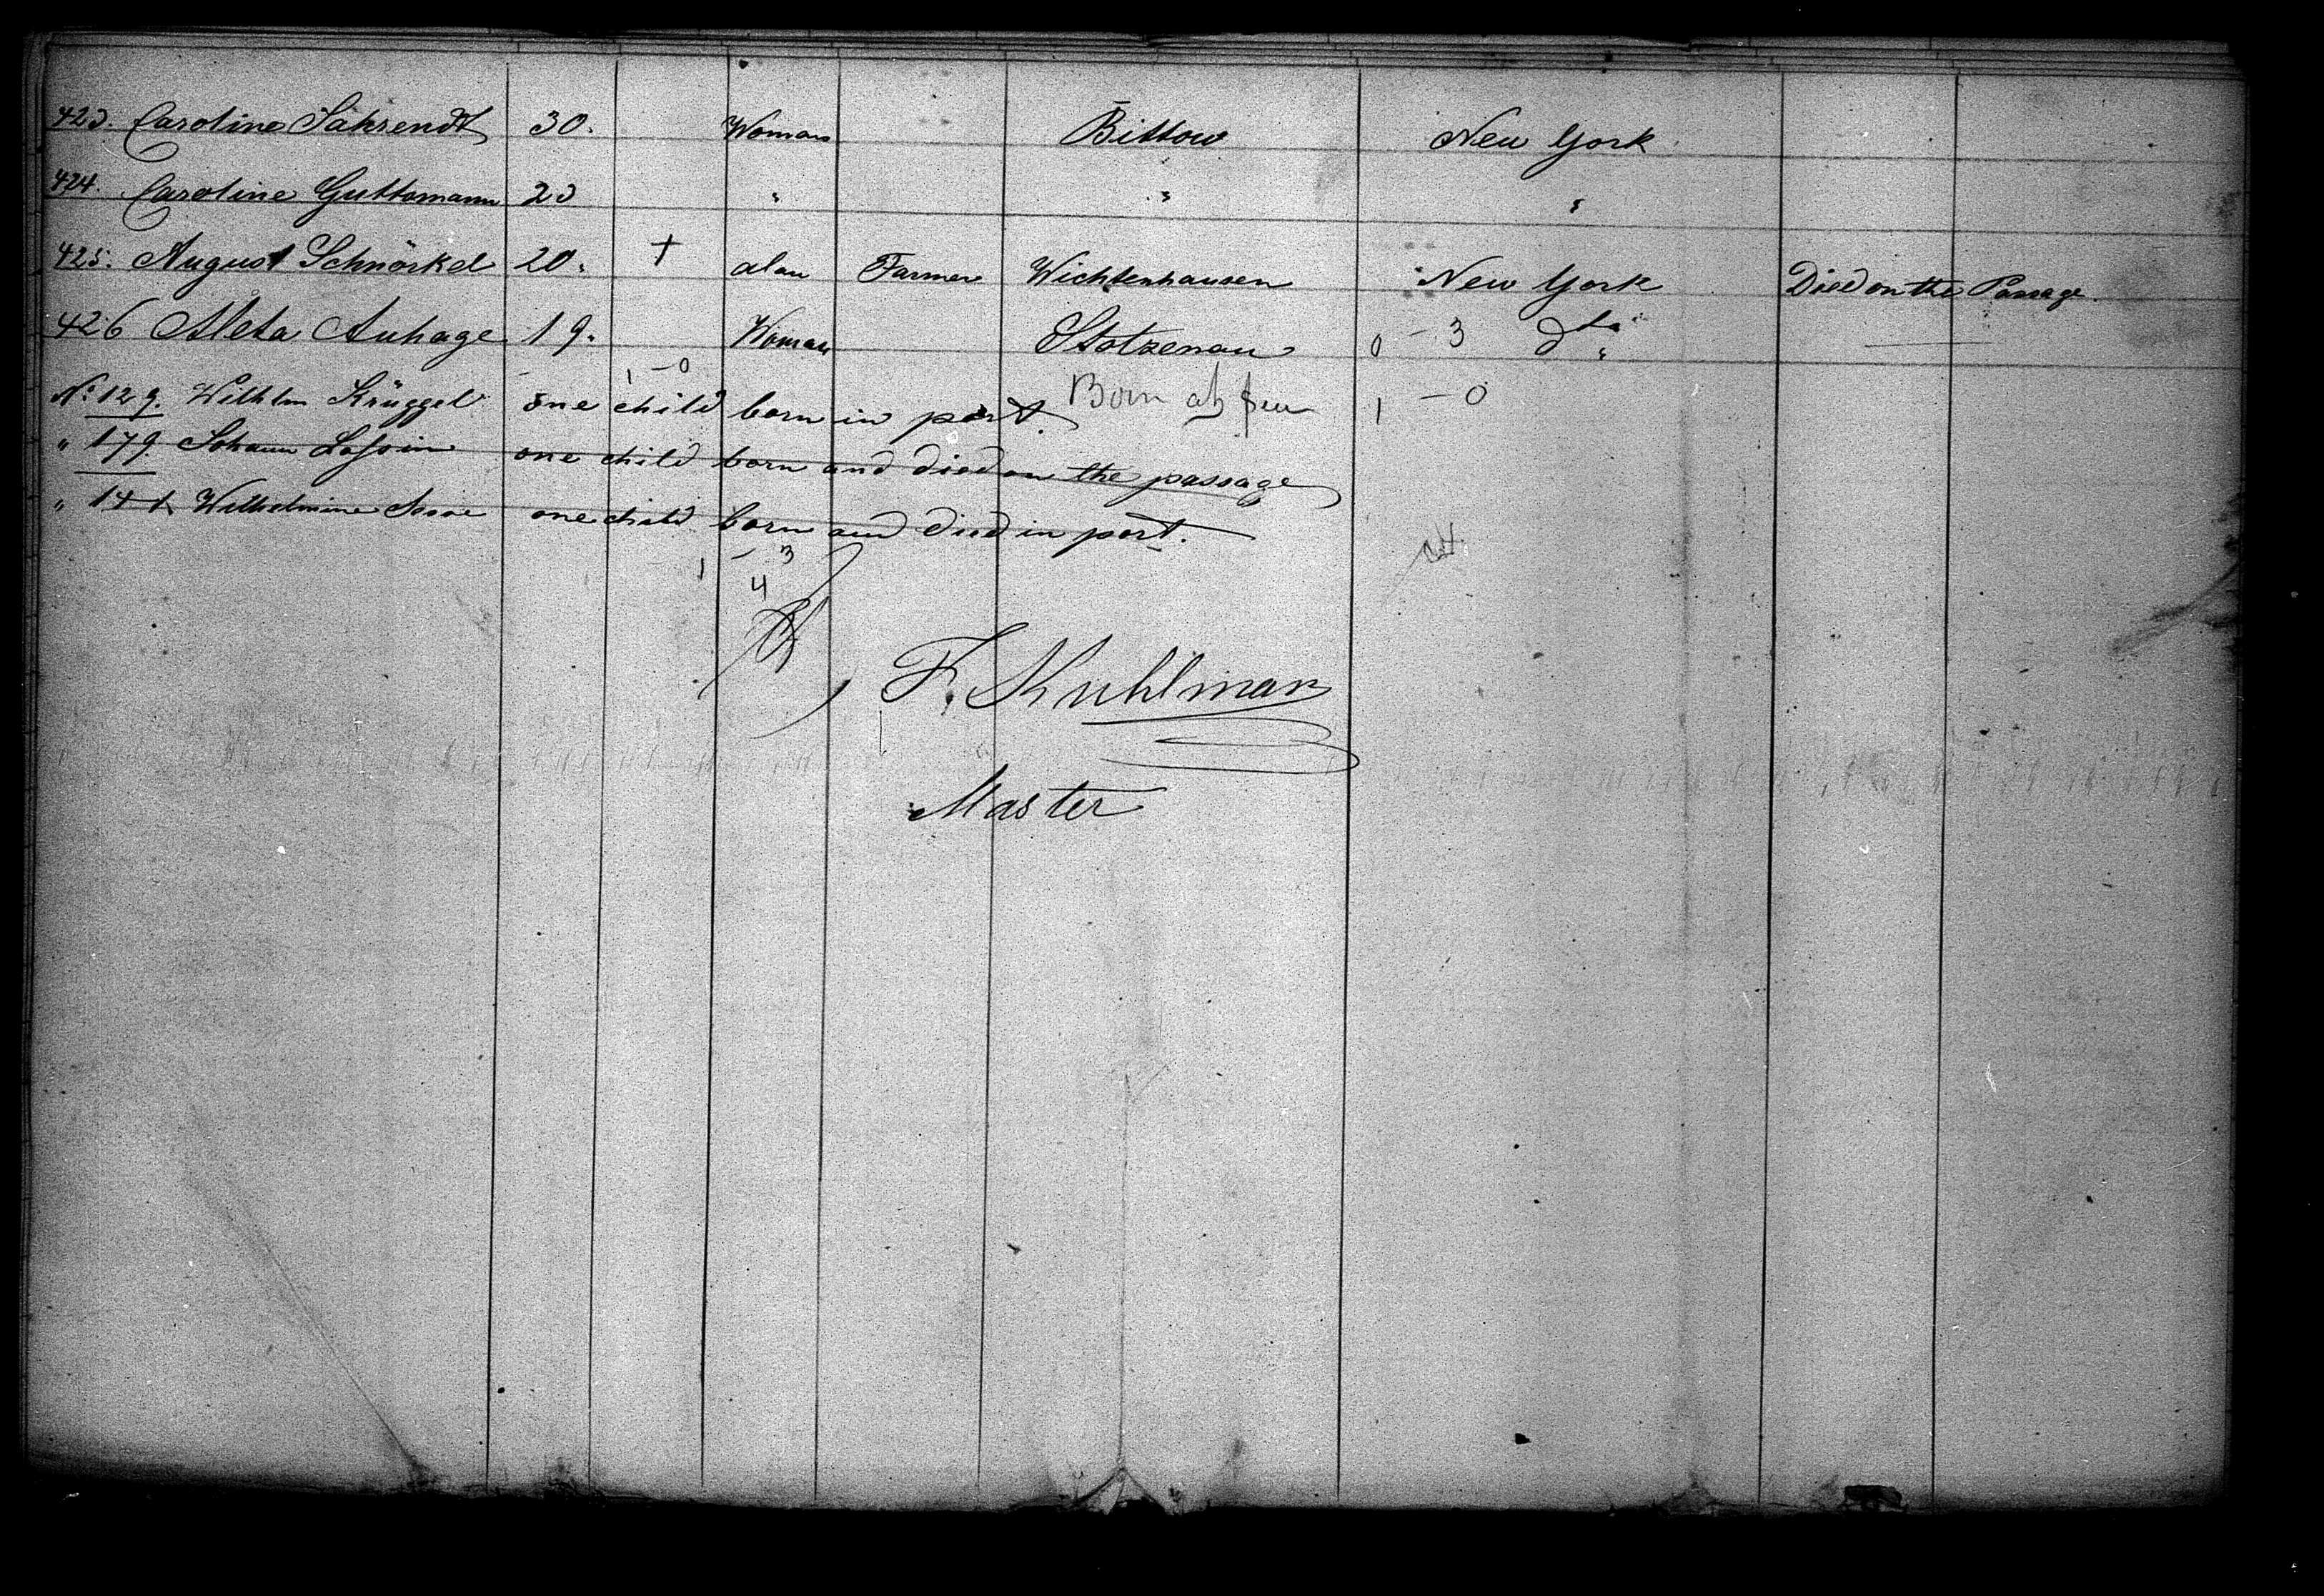 423. Caroline Sährendt 30. Woman Bittow New York
424. Caroline Guttomann 23 " " "
425. August Schnörkel 20. + Man Farmer Wichtenhausen New York Died on the Passage.
426 Meta Auhage 19. Woman Stolzenau 0 – 3 dto "
1 – 0
No 129. Wilhlm Krüggel one child born in port. Born at sea 1 – 0
" 179. Johann Lassin one child born and died on the passage
" 141. Wilhelmine one child born and died in port.
1 – 3
4
F. Kuhlman
Master